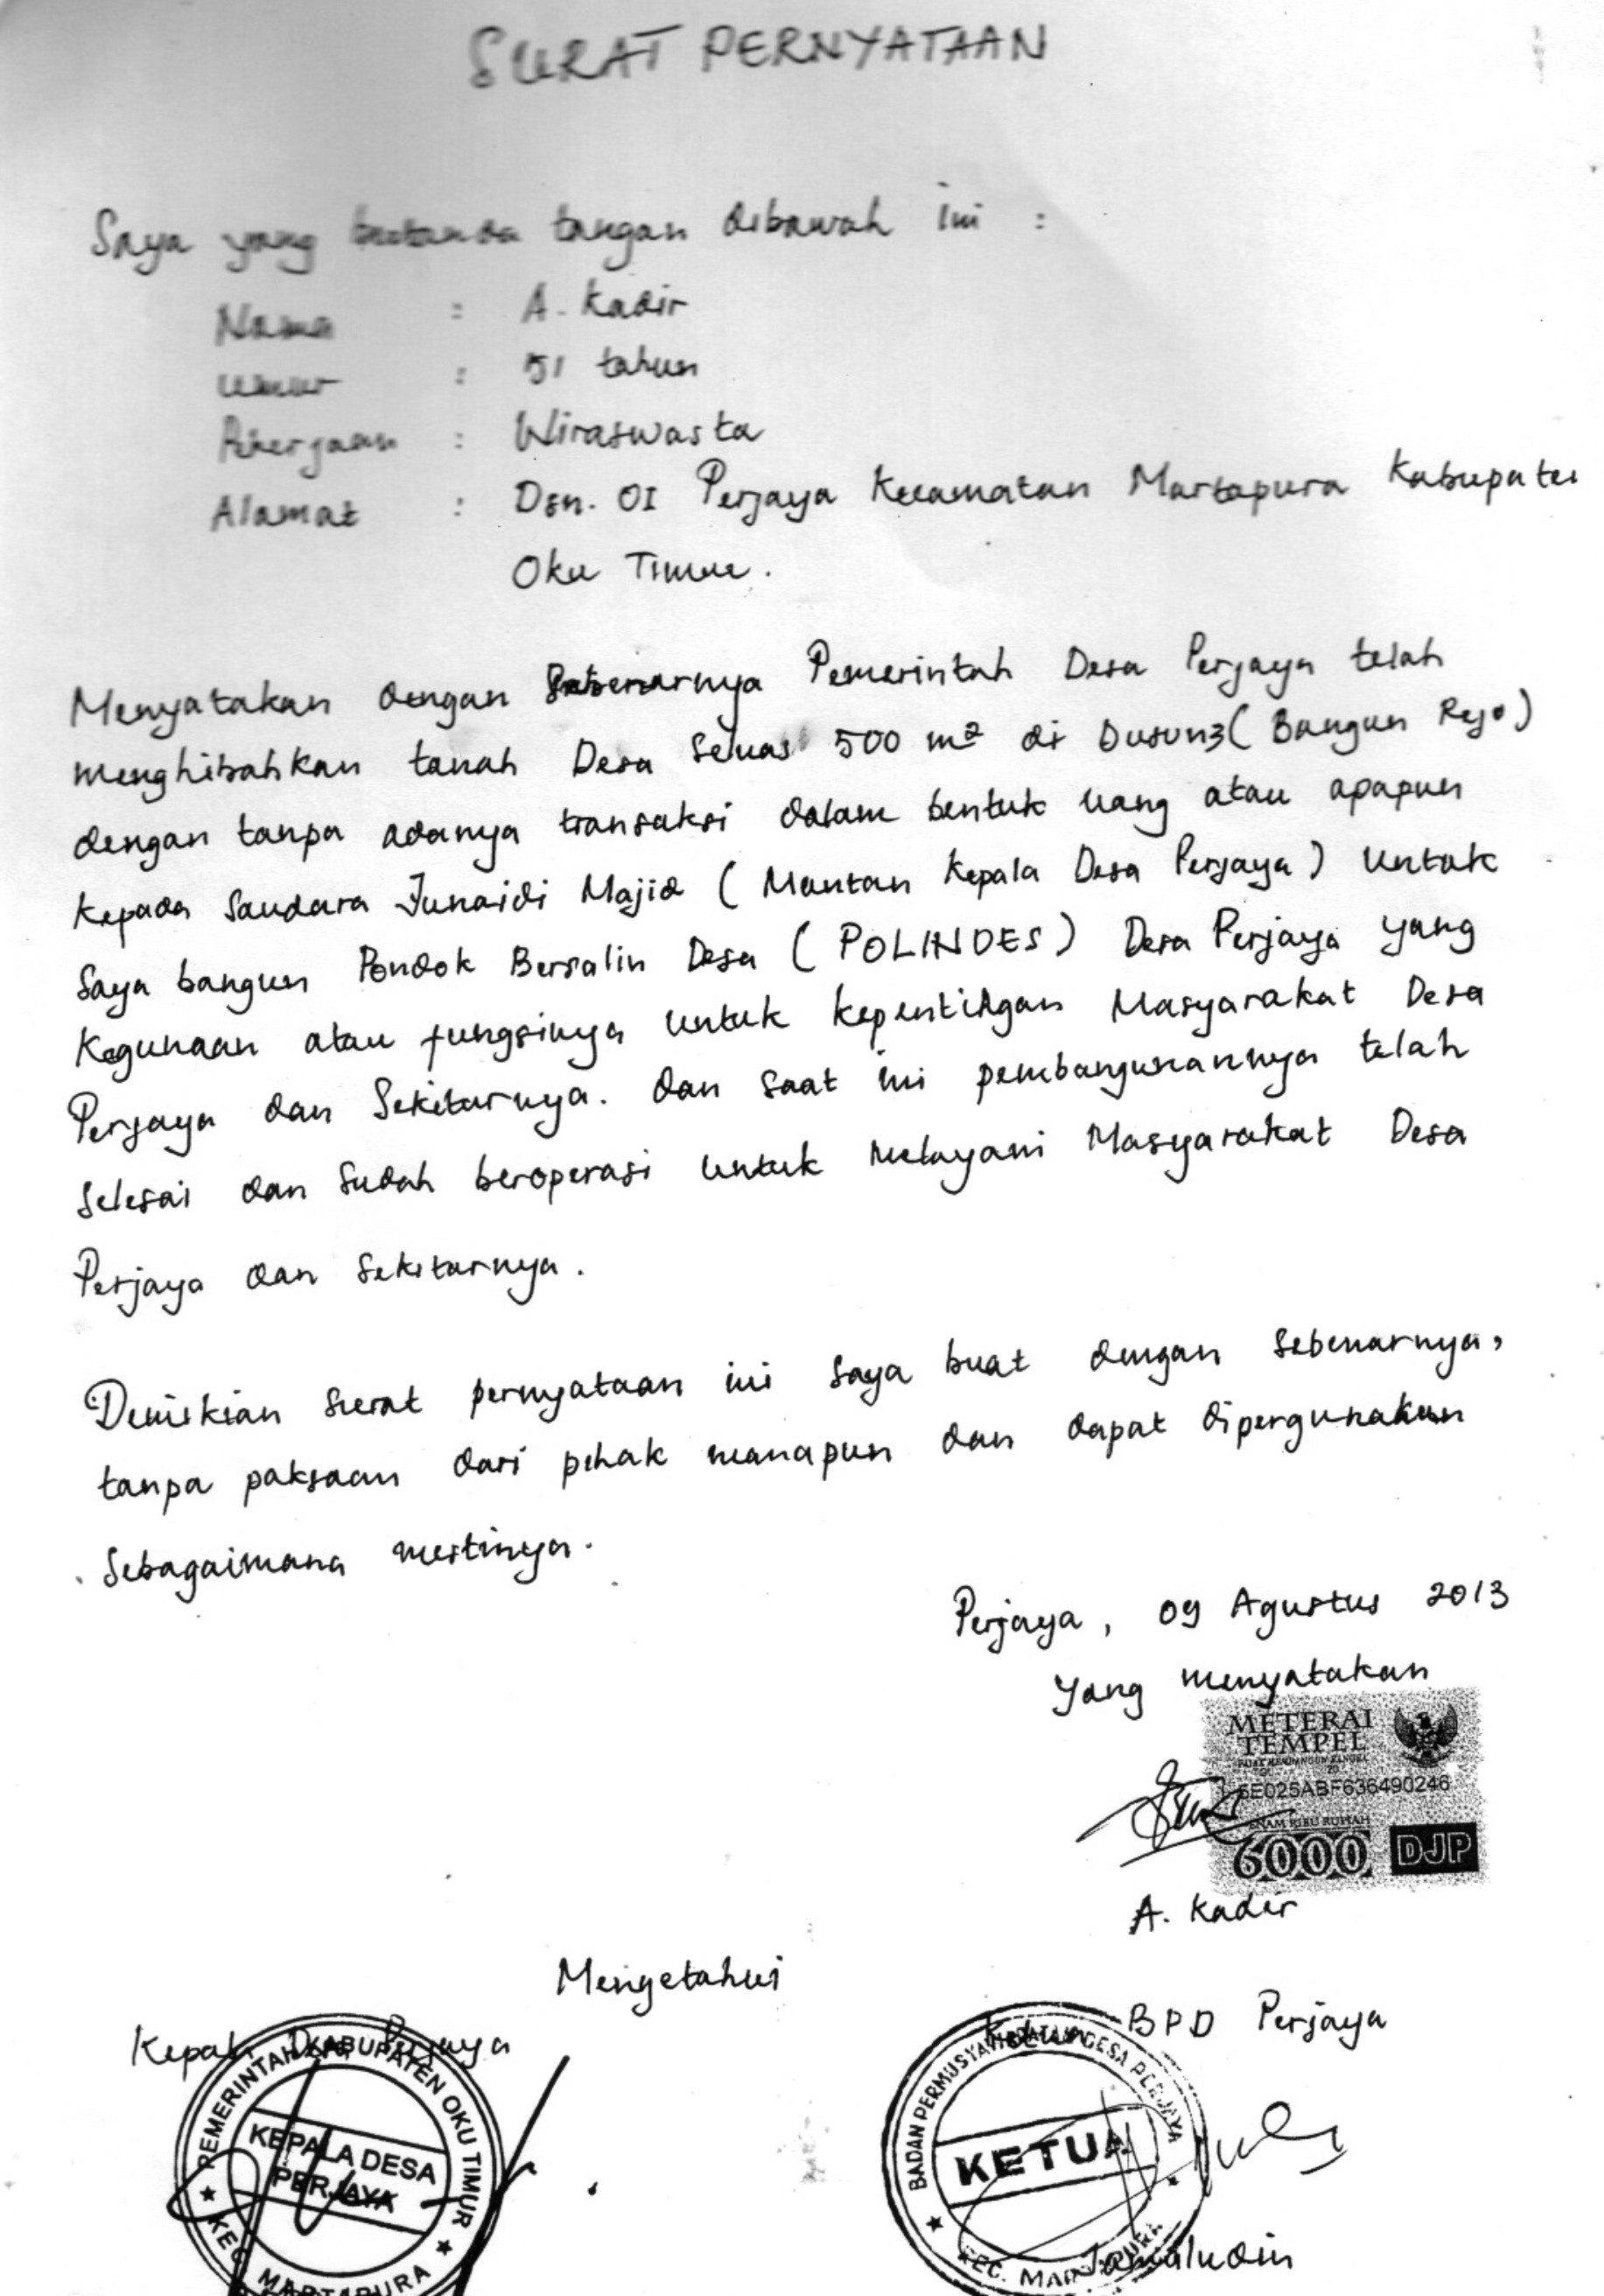 SURAT PERNYATAAN
Saya yang bertanda tangan dibawah ini :
Nama : A. Kadir
Umur : 51 tahun
Pekerjaan : Wiraswasta
Alamat : Dsn. 01 Perjaya Kecamatan Martapura Kabupaten
Oku Timur.
Menyatakan dengan Sebenarnya Pemerintah Desa Perjaya telah
menghibahkan tanah Desa Seluas 500 m² di Dusun 3 (Bangun Rejo)
dengan tanpa adanya transaksi dalam bentuk uang atau apapun
kepada Saudara Junaidi Majid (Mantan Kepala Desa Perjaya) untuk
Saya bangun Pondok Bersalin Desa (POLINDES) Desa Perjaya yang
Kegunaan atau fungsinya untuk kepentingan Masyarakat Desa
Perjaya dan Sekitarnya. dan saat ini pembangunannya telah
Selesai dan Sudah beroperasi untuk melayani Masyarakat Desa
Perjaya dan Sekitarnya.
Demikian Surat pernyataan ini saya buat dengan Sebenarnya,
tanpa paksaan dari pihak manapun dan dapat dipergunakan
Sebagaimana mestinya.
Perjaya, 09 Agustus 2013
Yang menyatakan
METERAI
TEMPEL
5E025ABF636490246
ENAM RIBU RUPIAH
6000 DJP
A. Kadir
Mengetahui
Kepala Desa Perjaya
Ketua BPD Perjaya
PEMERINTAH KABUPATEN OKU TIMUR
KEPALA DESA
PERJAYA
KEC. MARTAPURA
BADAN PERMUSYAWARATAN DESA PERJAYA
KETUA
KEC. MARTAPURA
Jamaludin